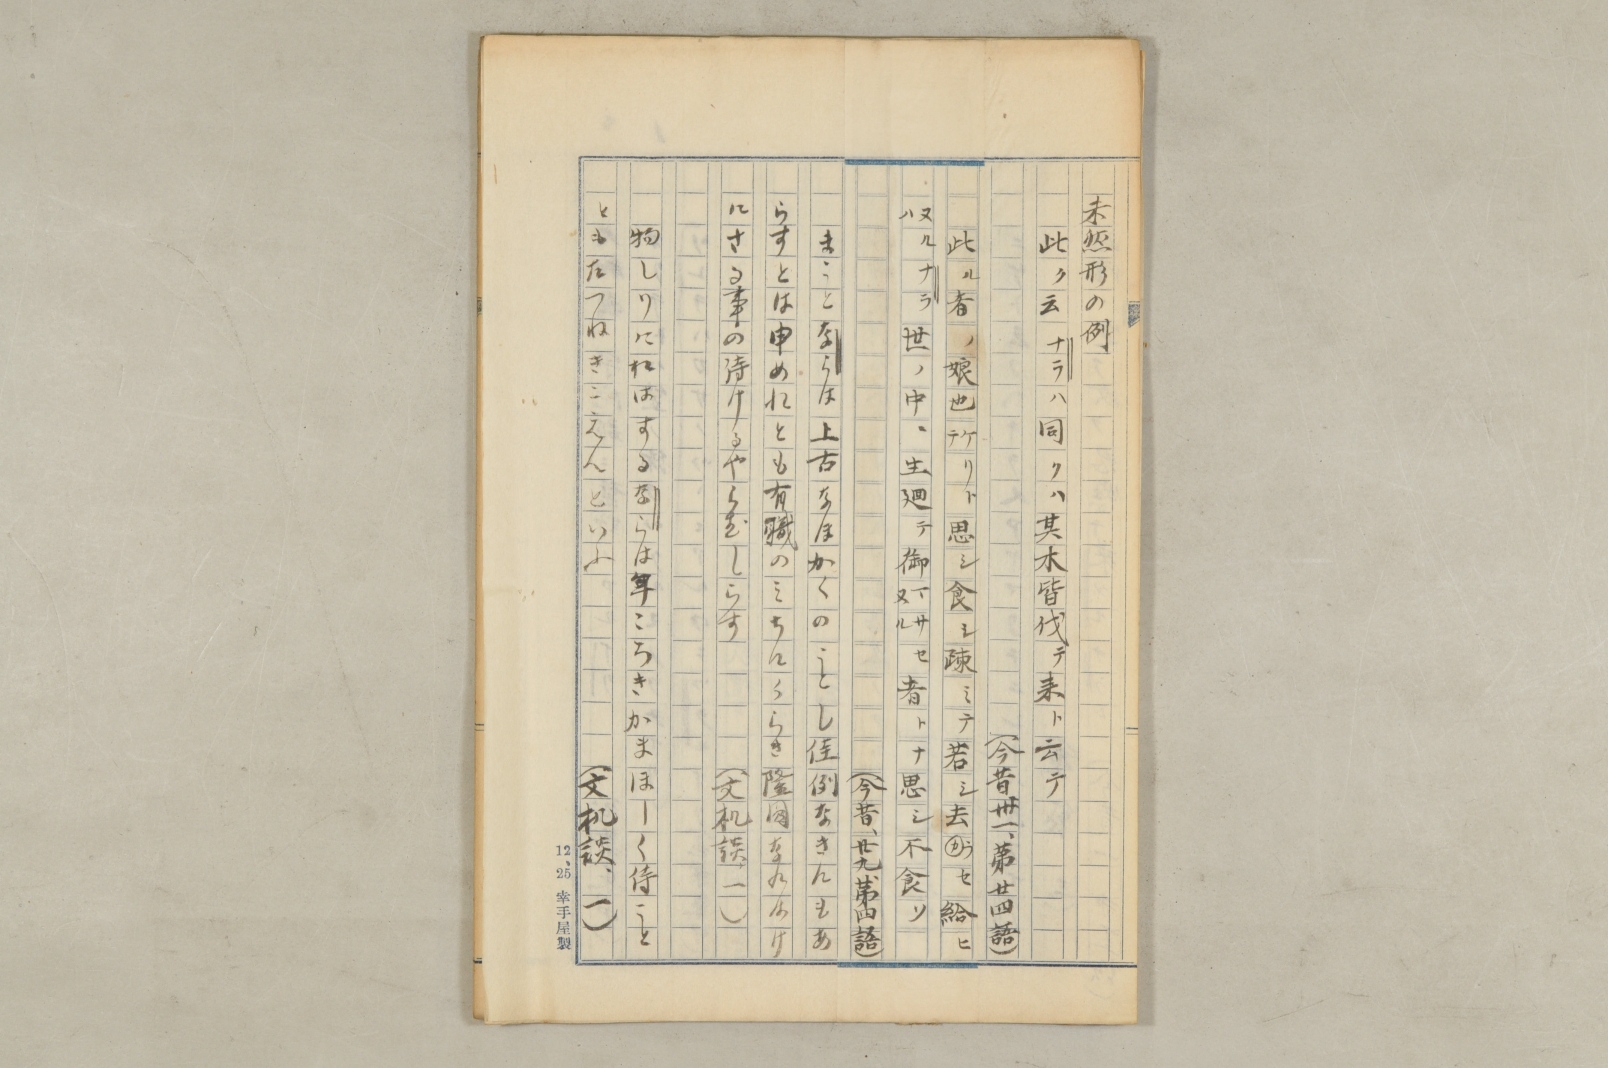 未然形の例
此ク云ナラハ同クハ其木皆伐テ来ト云テ
（今昔卅一、第廿四語）
此ル者ノ娘也ケリト思シ食シ疎ミテ若シ去ラセ給ヒ
ヌルナラハ世ノ中ニ生廻テ御マサセヌル者トナ思シ不食ソ
（今昔、廿九、第四語）
まことならは上古なほかくのことし佳例なきにもあ
らすとは申めれとも有職のみちにくらき隆国なれはけ
にさる事の侍けるやらむしらす
（文机談、一）
物しりにおはするならは年ころきかまほしく侍こと
ともたつねきこえんといふ
（文机談、一）
12、25 幸手屋製